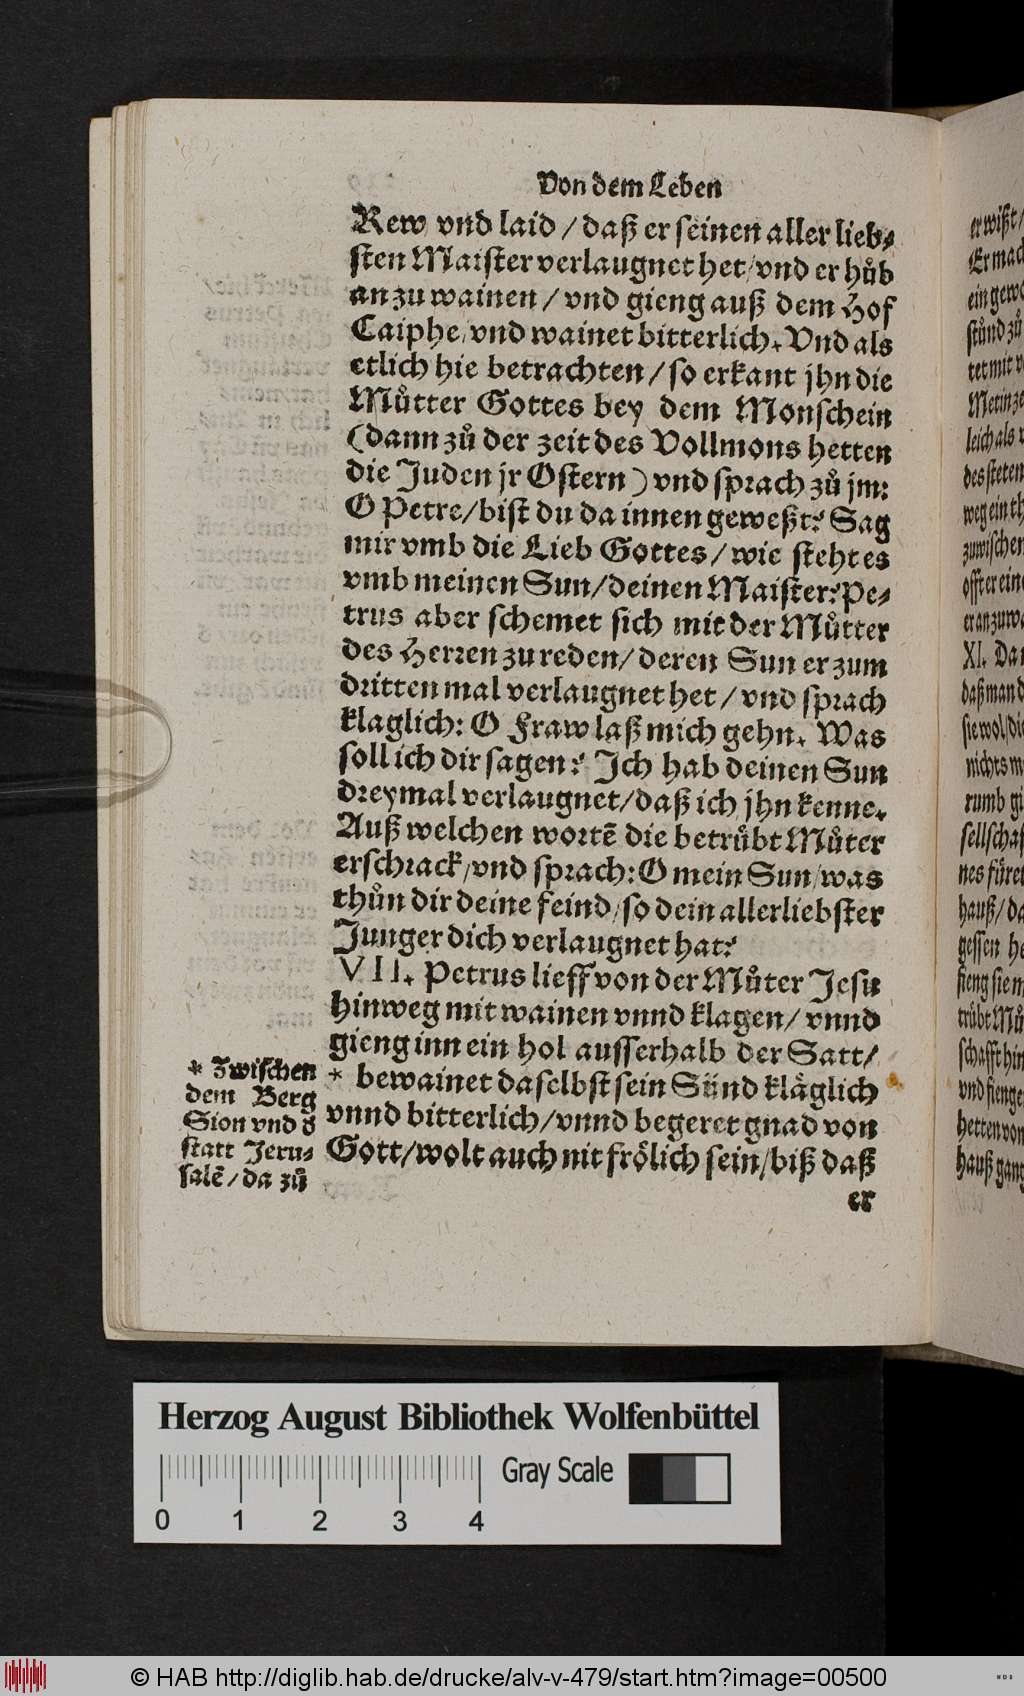 Von dem Leben
Rew vnd laid / daß er seinen aller lieb-
sten Maister verlaugnet het / vnd er hůb
an zu wainen / vnd gieng auß dem Hof
Caiphe / vnd wainet bitterlich. Vnd als
etlich hie betrachten / so erkant jhn die
Můtter Gottes bey dem Monschein
(dann zů der zeit des Vollmons hetten
die Juden jr Ostern) vnd sprach zů jm:
O Petre / bist du da innen geweßt? Sag
mir vmb die Lieb Gottes / wie steht es
vmb meinen Sun / deinen Maister? Pe-
trus aber schemet sich mit der Můtter
des Herren zu reden / deren Sun er zum
dritten mal verlaugnet het / vnd sprach
klaglich: O Fraw laß mich gehn. Was
soll ich dir sagen? Ich hab deinen Sun
dreymal verlaugnet / daß ich jhn kenne.
Auß welchen wortē die betrůbt Můter
erschrack / vnd sprach: O mein Sun / was
thůn dir deine feind / so dein allerliebster
Junger dich verlaugnet hat?
VII. Petrus lieff von der Můter Jesu
hinweg mit wainen vnnd klagen / vnnd
gieng inn ein hol ausserhalb der Satt /
* bewainet daselbst sein Sünd kläglich
vnnd bitterlich / vnnd begeret gnad von
Gott / wolt auch nit frölich sein / biß daß
er
* Zwischen
dem Berg
Sion vnd d
statt Jeru-
salē / da zů
er wißt /
Er mach
ein gewo
stůnd zů
tet mit v
leich als v
des steten
weg ein th
zuwischen
offt er eine
er anzuwa
XI. Dar
daß man d
sie wol / die
nichts m
rumb gi
sellschaf
nes füret
hauß / da
gessen he
fieng sie m
trübt Mů
schafft hin
vnd fienge
hetten von
hauß gang
Herzog August Bibliothek Wolfenbüttel
Gray Scale
0 1 2 3 4
© HAB http://diglib.hab.de/drucke/alv-v-479/start.htm?image=00500